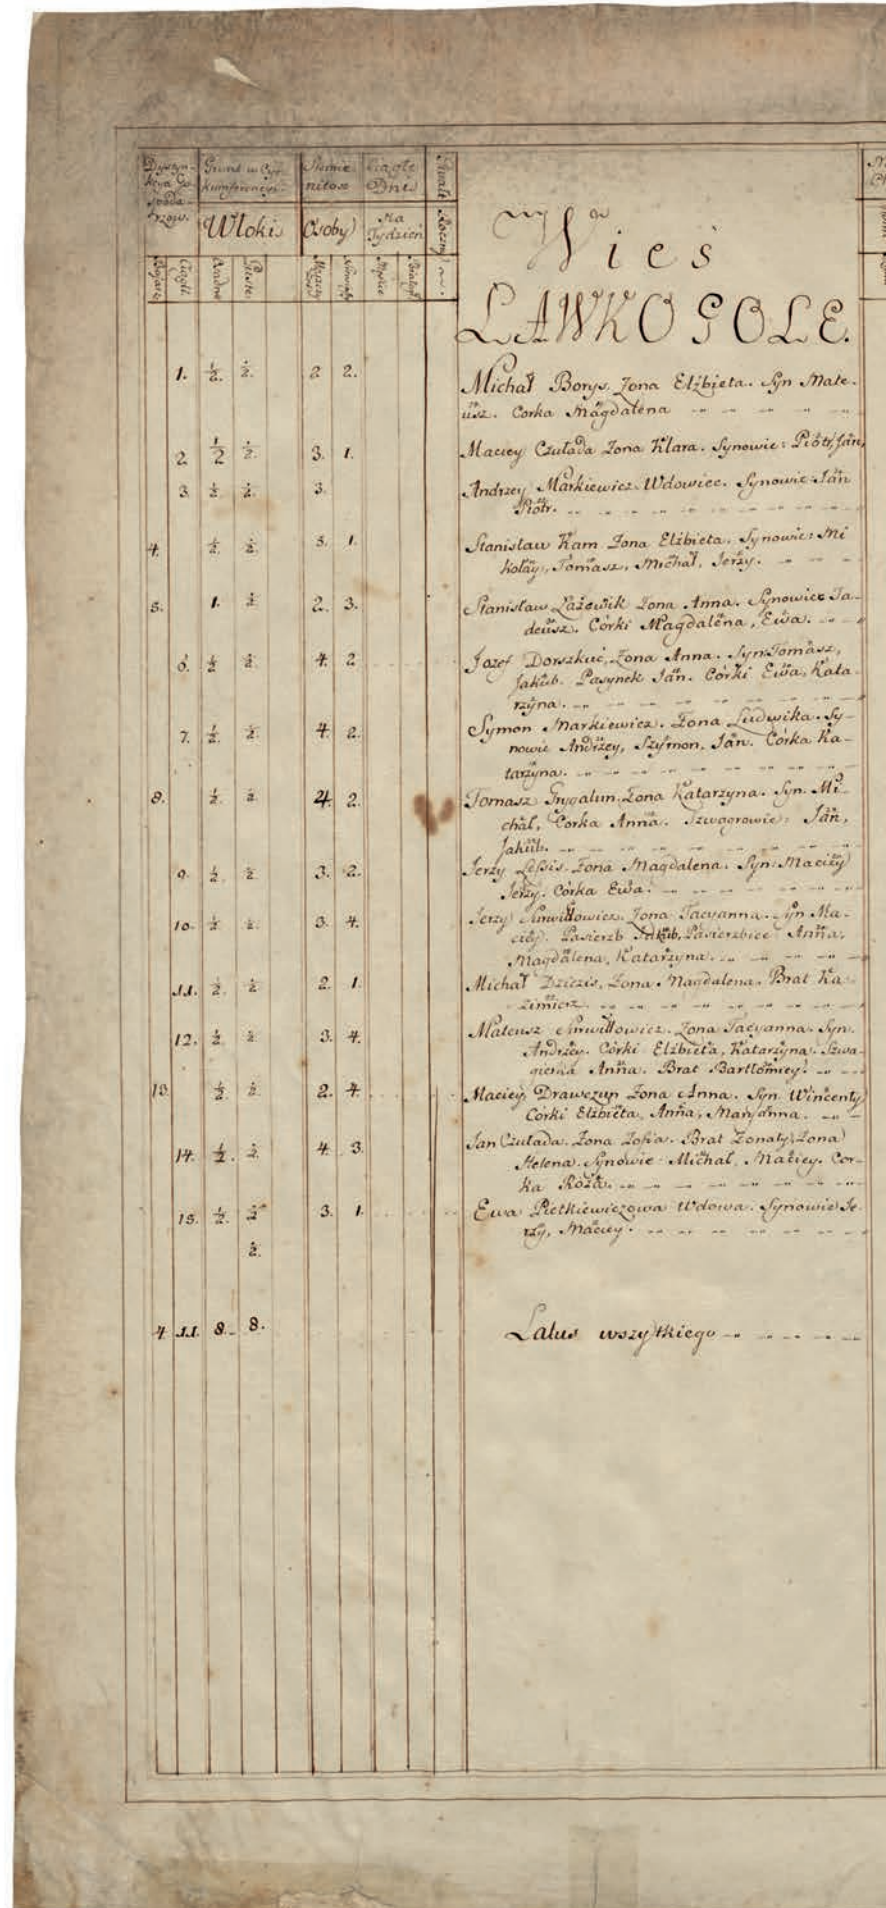 Dystyn-
kcya Go-
spoda-
rzow.
Grunt w Cyr-
kumferencyi.
Włoki
Osoby
Ciągłe
Dni
Na
Tydzień
Gwałt Roczny
Bojarz
Ciągli
Osiadłe
Puste
Męzczy
Niewia
Męskie
Wieś
ŁAWKOGOLE.
1. ½. ½. 2 2. Michał Borys. Zona Elżbieta. Syn Mate-
usz. Corka Magdalena
2 ½ ½. 3. 1. Maciey Czułada Zona Klara. Synowie: Piotr, Jan,
3. ½. ½. 3. Andrzey Markiewicz Wdowiec. Synowie Jan
Piotr.
4. ½. ½. 5. 1. Stanisław Kam Zona Elżbieta. Synowie: Mi
kołay, Tomasz, Michał, Jerzy.
5. 1. ½ 2. 3. Stanisław Łażewik Zona Anna. Synowiec Ta-
deusz. Córki Magdalena, Ewa.
6. ½ ½. 4. 2 Jozef Dorszkuć, Zona Anna. Syn Tomasz,
Jakub. Pasynek Jan. Córki Ewa, Kata-
rzyna.
7. ½. ½. 4. 2. Symon Markiewicz. Zona Ludwika. Sy-
nowie Andrzey, Szymon, Jan. Córka Ka-
tarzyna.
8. ½. ½. 4. 2. Tomasz Grygalun. Zona Katarzyna. Syn. Mi-
chał, Corka Anna. Szwagrowie: Jan,
Jakub.
9. ½. ½ 3. 2. Jerzy Zona Magdalena. Syn: Maciey
Jerzy. Córka Ewa.
10. ½. ½. 3. 4. Jerzy Zona Tacyanna. Syn Ma-
ciey. Pasierzb Jakub, Pasierzbice Anna,
Magdalena, Katarzyna.
11. ½. ½ 2. 1. Michał Dziczis, Zona Magdalena. Brat Ka-
zimierz.
12. ½ ½ 3. 4. Mateusz Zona Tacyanna. Syn.
Andrzey. Córki Elżbieta, Katarzyna. Szwa-
gierka Anna. Brat Bartłomiey.
13. ½. ½. 2. 4. Maciey Drawczun Zona Anna. Syn. Wincenty
Córki Elżbieta, Anna, Maryanna.
14. ½. ½. 4. 3. Jan Czułada. Zona Zofia. Brat Zonaty, Zona
Helena. Synowie Michał, Maciey. Cor-
ka Róża.
15. ½. ½ 3. 1. Ewa Pietkiewiczowa Wdowa. Synowie Je-
rzy, Maciey.
½.
4 11. 8. 8. Latus wszytkiego